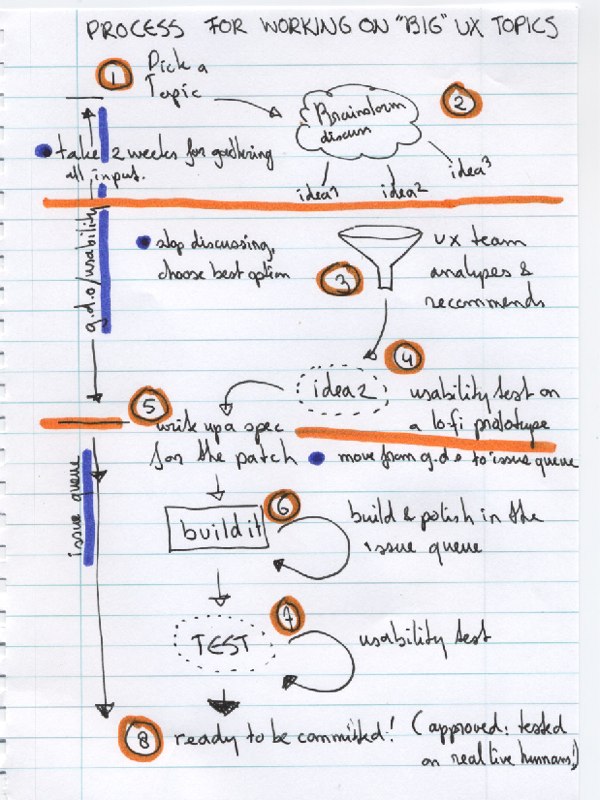 PROCESS FOR WORKING ON "BIG" UX TOPICS
1
Pick a
Topic
2
Brainstorm
discuss
take 2 weeks for gathering
all input.
idea1
idea2
idea3
g.d.o/usability
stop discussing,
choose best option
3
UX team
analyses &
recommends
4
idea 2
usability test on
a lo-fi prototype
5
write up a spec
for the patch
move from g.d.o to issue queue
issue queue
6
build it
build & polish in the
issue queue
7
TEST
usability test
8
ready to be committed!
(approved: tested
on real live humans!)